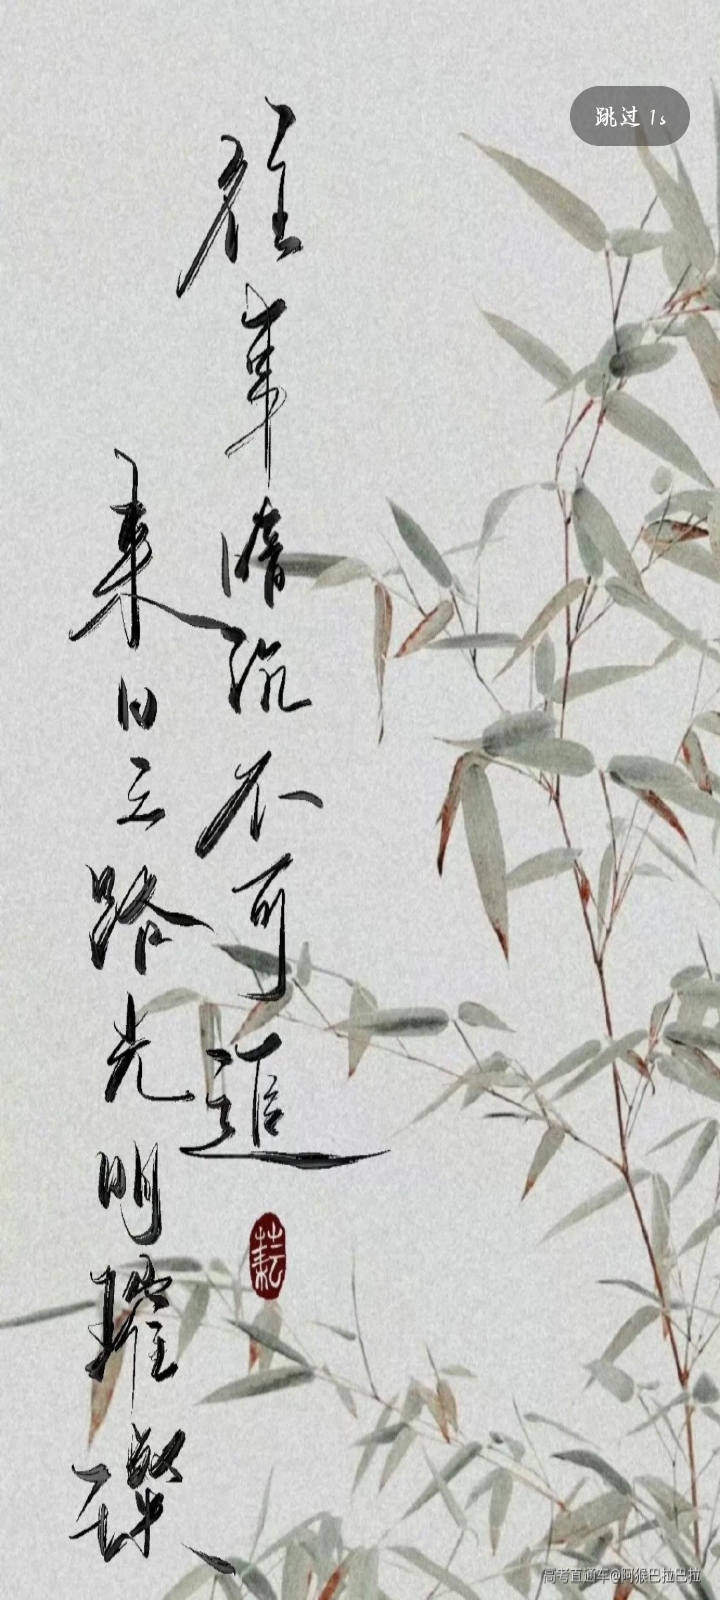 跳过 1s
往事暗沉不可追
来日之路光明璀璨
耘
高考直通车@阿猴巴拉巴拉